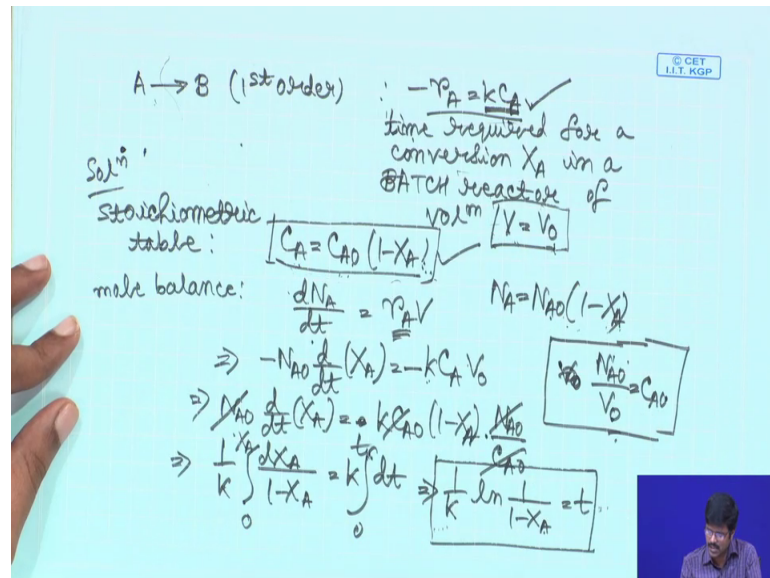 © CET
I.I.T. KGP
A → B (1st order) : -r_A = kC_A ✓
time required for a
conversion X_A in a
BATCH reactor of
vol^m V = V_0
Sol^n
stoichiometric
table: C_A = C_A0 (1-X_A) ✓
mole balance: dN_A/dt = r_A V N_A = N_A0 (1-X_A)
⇒ -N_A0 d/dt (X_A) = -kC_A V_0
N_A0/V_0 = C_A0
⇒ N_A0 d/dt (X_A) = kC_A0 (1-X_A) . N_A0/C_A0
⇒ 1/k ∫_0^X_A dX_A/(1-X_A) = k ∫_0^t dt ⇒ 1/k ln 1/(1-X_A) = t